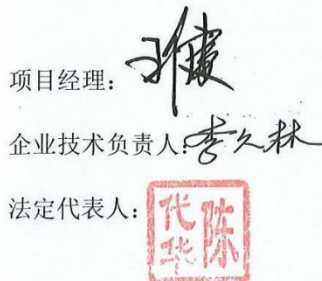 项目经理:
企业技术负责人:李久林
法定代表人:
陈代华